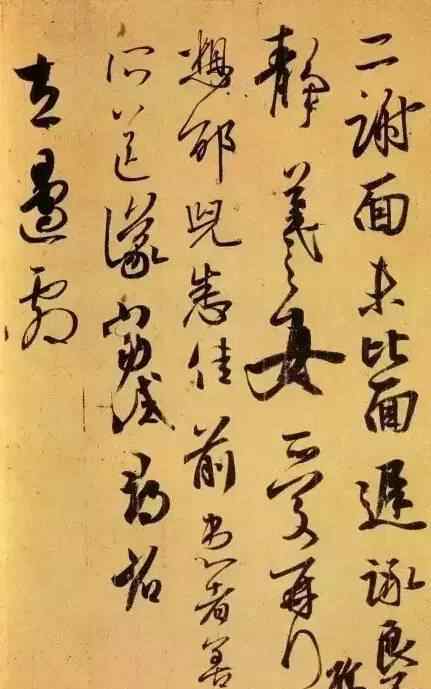 二謝面未比面遲詠良
静羲之女愛再
想邰兒悉佳前患者善
所送議當試尋
左邊劇